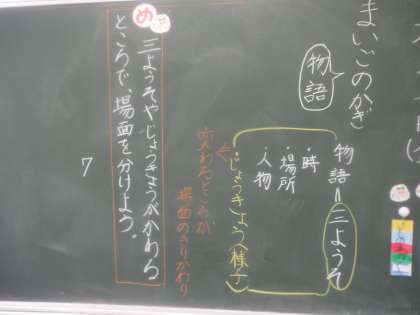 まいごのかぎ
物語
物語＝三ようそ
・時
・場所
・人物
・じょうきょう(様子)
変わるところが
場面のきりかわり
め
三ようそやじょうきょうがかわる
ところで、場面を分けよう。
7